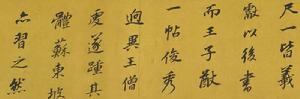 尺一皆羲
獻以後書
而王子猷
一帖俊秀
迥異王僧
虔遂踵其
體蘇東坡
亦習之然